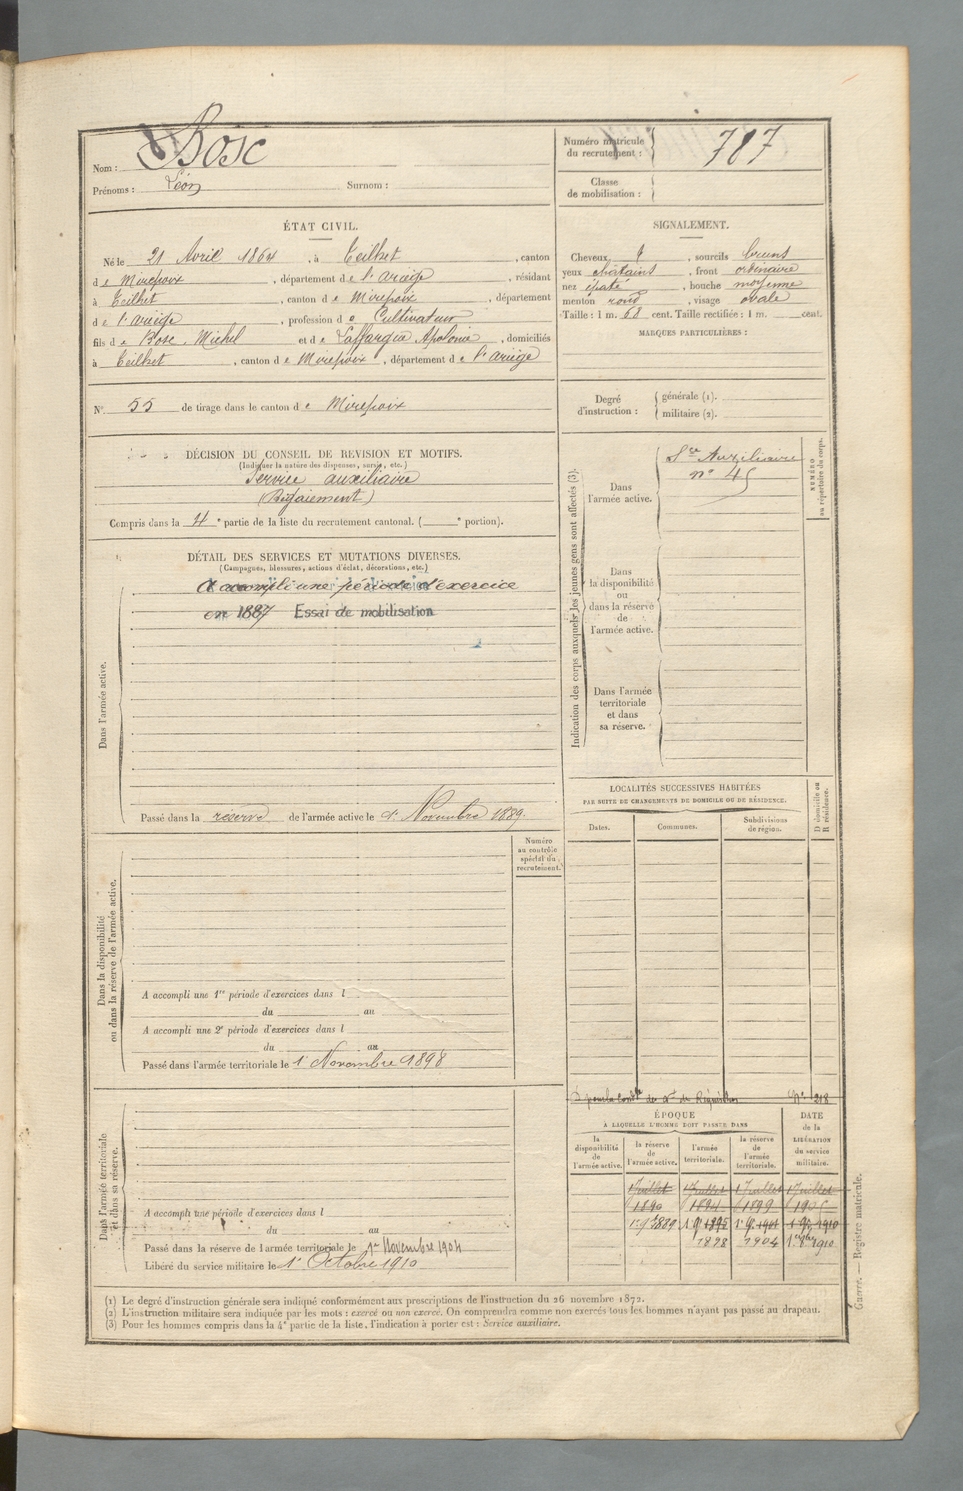 Nom : Bosc
Prénoms : Léon Surnom :
Numéro matricule du recrutement : 787
Classe de mobilisation :
ÉTAT CIVIL.
Né le 21 Avril 1864, à Teilhet, canton
de Mirepoix, département de l'Ariège, résidant
à Teilhet, canton de Mirepoix, département
de l'Ariège, profession de Cultivateur
fils de Bosc, Michel et de Laffargue Apolonie, domiciliés
à Teilhet, canton de Mirepoix, département de l'Ariège
N° 55 de tirage dans le canton de Mirepoix
SIGNALEMENT.
Cheveux et, sourcils bruns
yeux chatains, front ordinaire
nez épaté, bouche moyenne
menton rond, visage ovale
Taille : 1 m. 68 cent. Taille rectifiée : 1 m. cent.
MARQUES PARTICULIÈRES :
Degré d'instruction : générale (1).
militaire (2).
DÉCISION DU CONSEIL DE REVISION ET MOTIFS.
(Indiquer la nature des dispenses, sursis, etc.)
Service auxiliaire
(Bégaiement)
Compris dans la 4e partie de la liste du recrutement cantonal. ( e portion).
DÉTAIL DES SERVICES ET MUTATIONS DIVERSES.
(Campagnes, blessures, actions d'éclat, décorations, etc.)
Dans l'armée active.
A accompli une période d'exercice
en 1887 Essai de mobilisation
Passé dans la réserve de l'armée active le 1er Novembre 1889.
Indication des corps auxquels les jeunes gens sont affectés (3).
NUMÉRO au répertoire du corps.
Dans l'armée active.
Sce Auxiliaire
n° 45
Dans la disponibilité ou dans la réserve de l'armée active.
Dans l'armée territoriale et dans sa réserve.
LOCALITÉS SUCCESSIVES HABITÉES
PAR SUITE DE CHANGEMENTS DE DOMICILE OU DE RÉSIDENCE.
D domicile ou R résidence.
Dates. Communes. Subdivisions de région.
Dans la disponibilité ou dans la réserve de l'armée active.
Numéro au contrôle spécial du recrutement.
A accompli une 1re période d'exercices dans l
du au
A accompli une 2e période d'exercices dans l
du au
Passé dans l'armée territoriale le 1er Novembre 1898
Dans l'armée territoriale et dans sa réserve.
A accompli une période d'exercices dans l
du au
Passé dans la réserve de l'armée territoriale le 1er Novembre 1904
Libéré du service militaire le 1er Octobre 1910
N° 218
ÉPOQUE
À LAQUELLE L'HOMME DOIT PASSER DANS
DATE de la LIBÉRATION du service militaire.
la disponibilité de l'armée active.
la réserve de l'armée active.
l'armée territoriale.
la réserve de l'armée territoriale.
1 Juillet 1 Juillet 1 Juillet 1 Juillet
1890 1894 1899 1905
1898 1904
(1) Le degré d'instruction générale sera indiqué conformément aux prescriptions de l'instruction du 26 novembre 1872.
(2) L'instruction militaire sera indiquée par les mots : exercé ou non exercé. On comprendra comme non exercés tous les hommes n'ayant pas passé au drapeau.
(3) Pour les hommes compris dans la 4e partie de la liste, l'indication à porter est : Service auxiliaire.
Guerre. — Registre matricule.